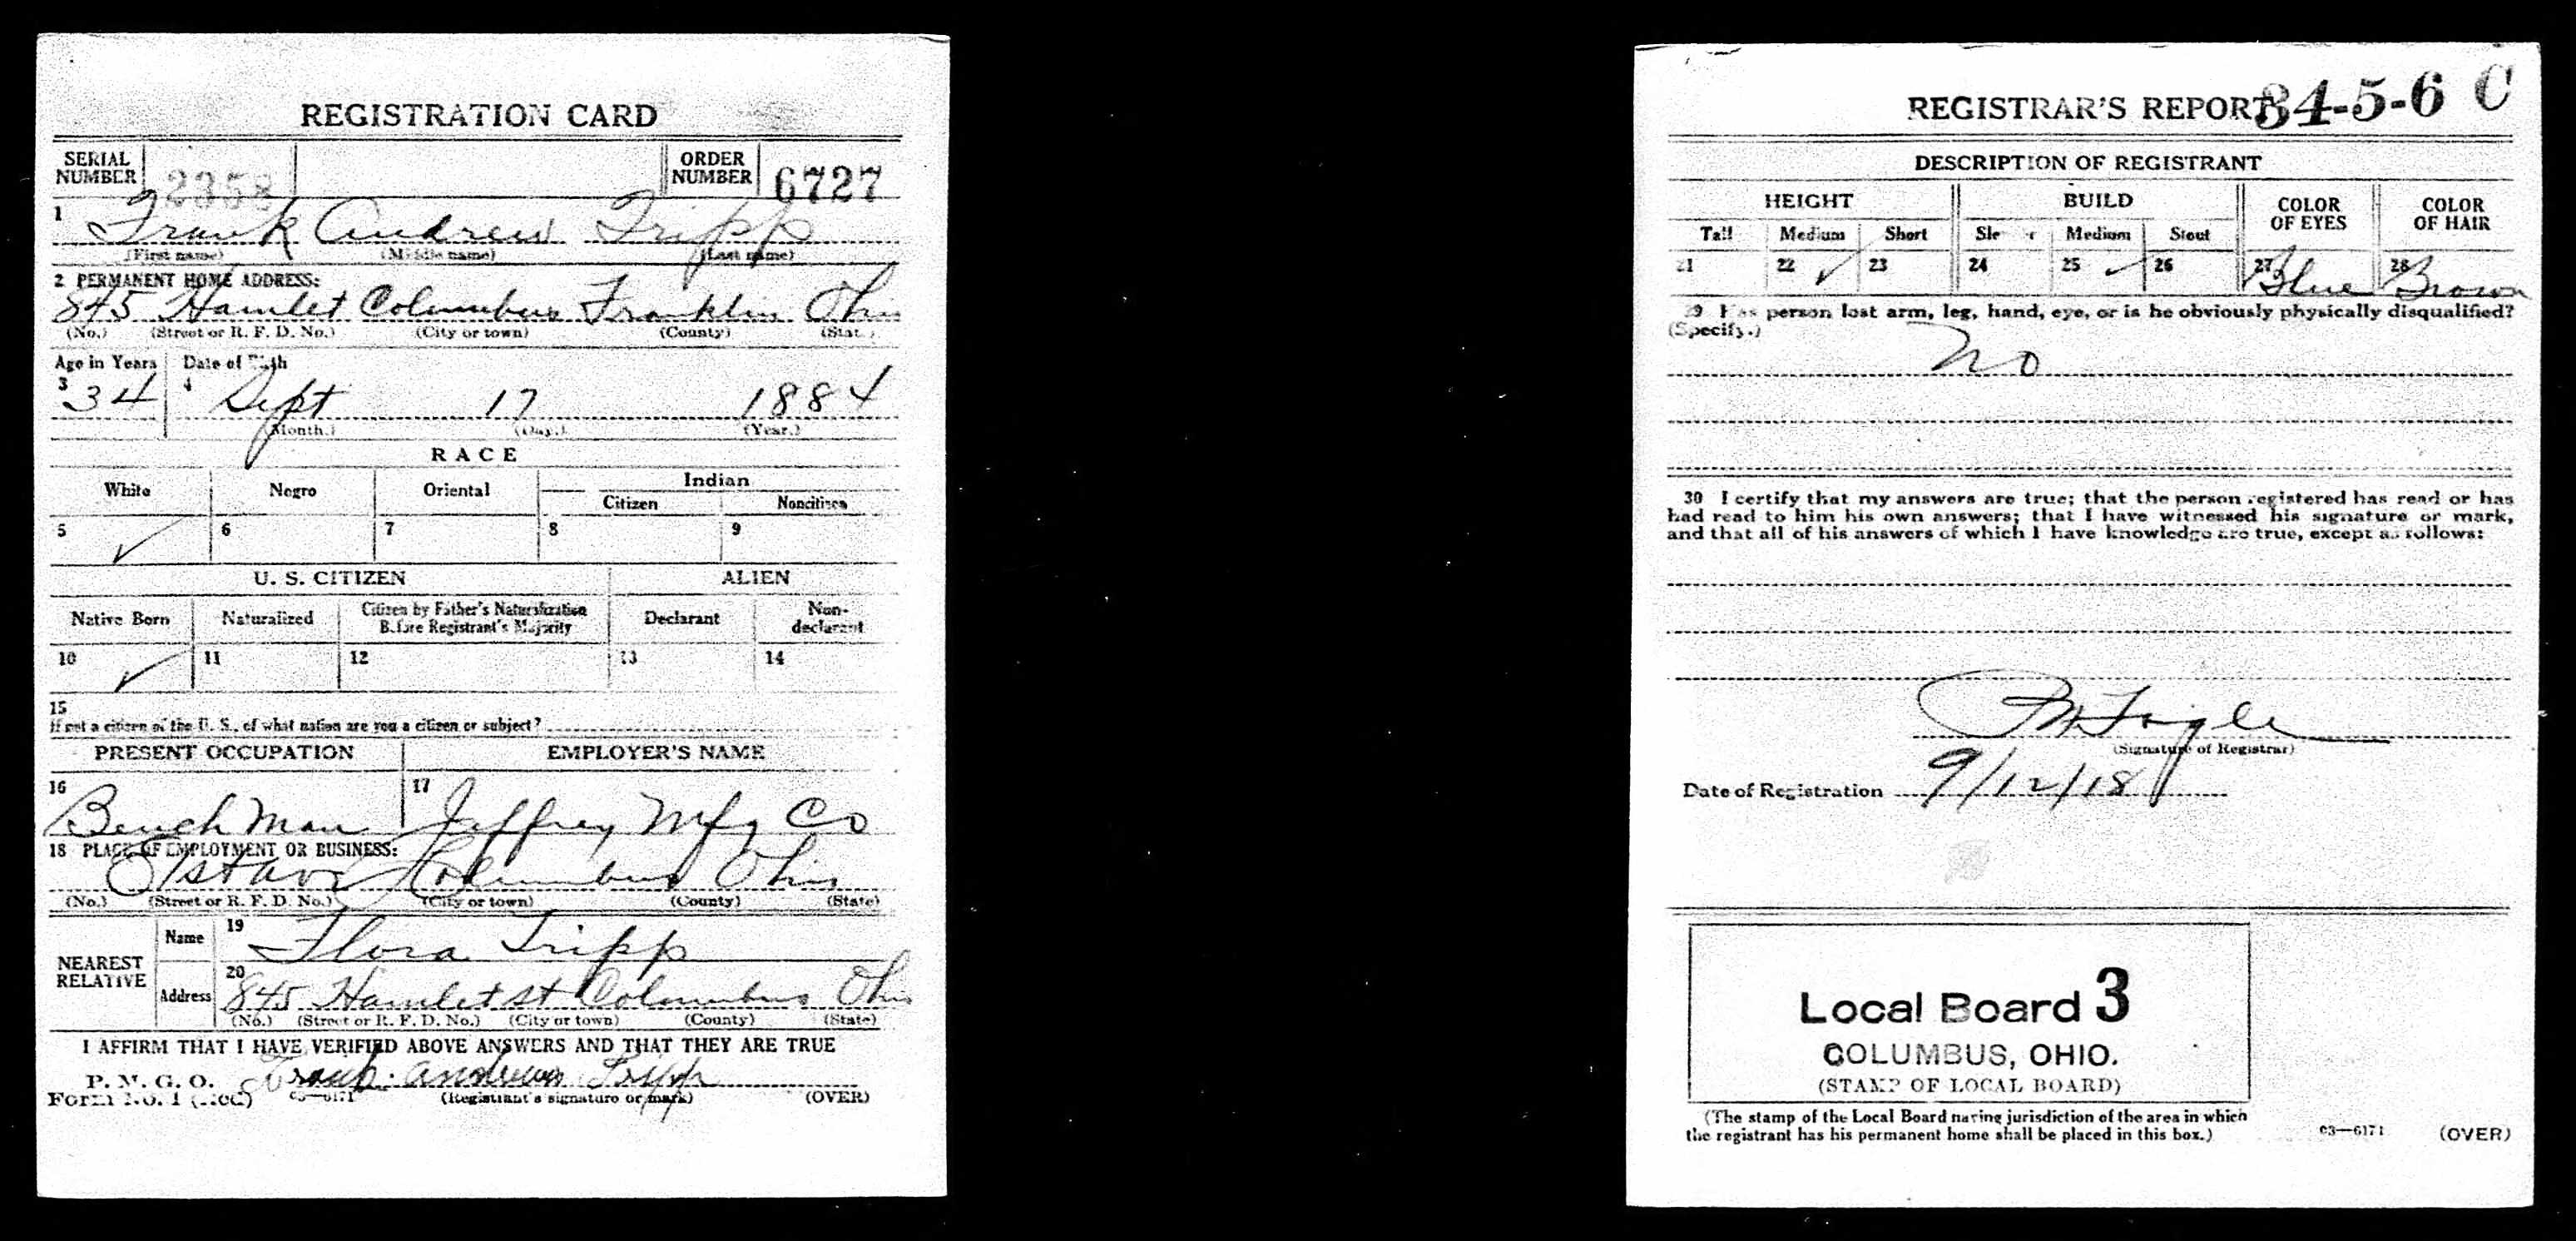 REGISTRATION CARD
SERIAL NUMBER 2358 ORDER NUMBER 6727
1 Frank Andrew Tripp
(First name) (Middle name) (Last name)
2 PERMANENT HOME ADDRESS:
845 Hamlet Columbus Franklin Ohio
(No.) (Street or R. F. D. No.) (City or town) (County) (State)
Age in Years Date of Birth
3 34 4 Sept 17 1884
(Month.) (Day.) (Year.)
RACE
White Negro Oriental Indian
Citizen Noncitizen
5 ✓ 6 7 8 9
U. S. CITIZEN ALIEN
Native Born Naturalized Citizen by Father's Naturalization Before Registrant's Majority Declarant Non-declarant
10 ✓ 11 12 13 14
15
If not a citizen of the U. S., of what nation are you a citizen or subject?
PRESENT OCCUPATION EMPLOYER'S NAME
16 Bench Man 17 Jeffrey Mfg Co
18 PLACE OF EMPLOYMENT OR BUSINESS:
1st Ave Columbus Ohio
(No.) (Street or R. F. D. No.) (City or town) (County) (State)
NEAREST RELATIVE Name 19 Flora Tripp
Address 20 845 Hamlet st Columbus Ohio
(No.) (Street or R. F. D. No.) (City or town) (County) (State)
I AFFIRM THAT I HAVE VERIFIED ABOVE ANSWERS AND THAT THEY ARE TRUE
P. M. G. O.
Form No. 1 (Red) 03—6171 Frank Andrew Tripp
(Registrant's signature or mark) (OVER)
REGISTRAR'S REPORT 34-5-6 C
DESCRIPTION OF REGISTRANT
HEIGHT BUILD COLOR OF EYES COLOR OF HAIR
Tall Medium Short Slender Medium Stout
21 22 ✓ 23 24 25 ✓ 26 27 Blue 28 Brown
29 Has person lost arm, leg, hand, eye, or is he obviously physically disqualified?
(Specify.)
No
30 I certify that my answers are true; that the person registered has read or has
had read to him his own answers; that I have witnessed his signature or mark,
and that all of his answers of which I have knowledge are true, except as follows:
(Signature of Registrar)
Date of Registration 9/12/18
Local Board 3
COLUMBUS, OHIO.
(STAMP OF LOCAL BOARD)
(The stamp of the Local Board having jurisdiction of the area in which
the registrant has his permanent home shall be placed in this box.)
03—6171 (OVER)